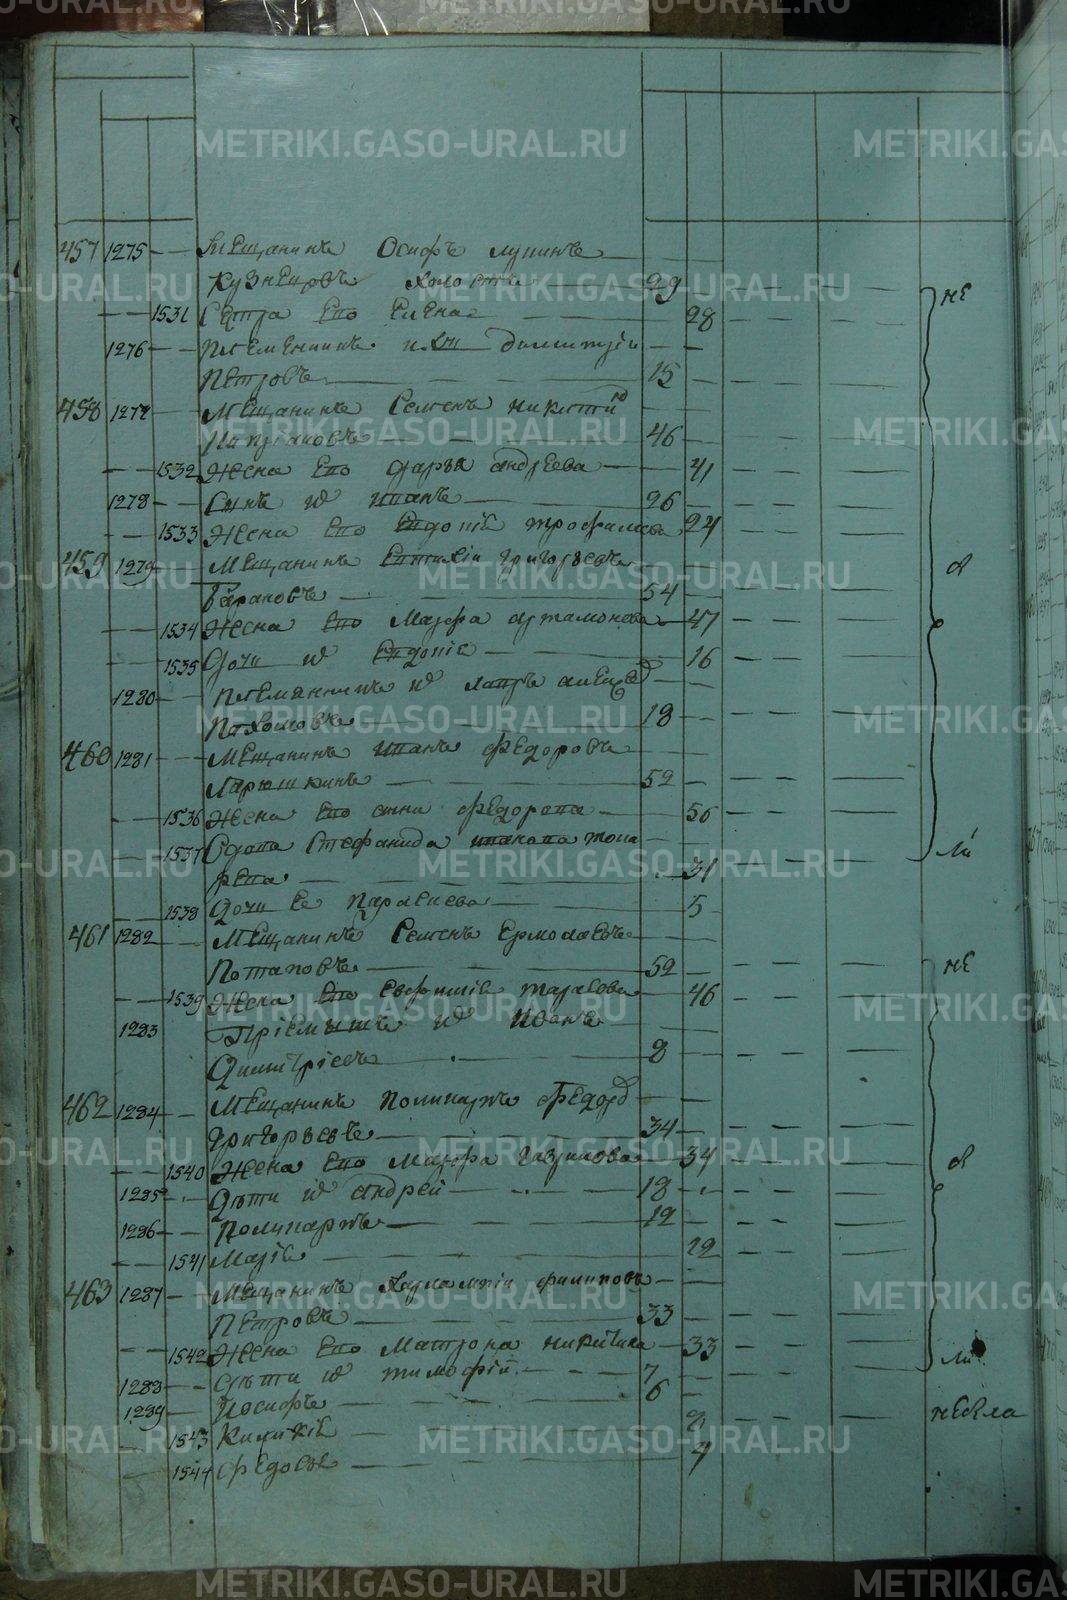 METRIKI.GASO-URAL.RU
457 1275 Мещанинъ Осифъ Лукинъ
Кузнецовъ холостъ 29 не
1531 Сестра его Елена 28
1276 Племенникъ ихъ Димитрій
Петровъ 15
458 1277 Мещанинъ Семенъ Никитинъ
46
1532 Жена его Дарья Андреева 41
1278 Сынъ их Иванъ 26
1533 Жена его Евдокія Трофимова 24
459 1279 Мещанинъ Евтихій Григорьевъ
Барановъ 54
1534 Жена его Марфа Артамонова 47
1535 Дочь их Евдокія 16
1280 Племянникъ их
Пахомовъ 18
460 1281 Мещанинъ Иванъ Федоровъ
Ларюшкинъ 52
1536 Жена его Анна Федорова 56
1537 Вдова Стефанида Иванова Тока
рева 31 ли
1538 Дочь ее Параскева 5
461 1282 Мещанинъ Семенъ Ермолаевъ
Потаповъ 52 не
1539 Жена его Евфимія Тарасова 46
1283 Пріемышъ их Иванъ
Димитріевъ 8
462 1284 Мещанинъ Поликарпъ Федоров
Григорьевъ 34
1540 Жена его Марфа Гаврилова 34
1285 Дѣти их Андрей 18
1286 Поликарпъ 12
1541 Марія 12
463 1287 Мещанинъ Харлампій Филиповъ
Петровъ 33
1542 Жена его Матрона Никитина 33
ли
1288 Дѣти их Тимофій 7
1289 Иосифъ 6
не была
1543 Киликія 8
1544 Федосья 4